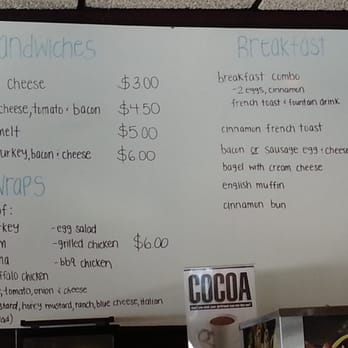 andwiches
cheese $3.00
cheese, tomato + bacon $4.50
melt $5.00
urkey, bacon + cheese $6.00
wraps
of:
key -egg salad
m -grilled chicken $6.00
na -bbq chicken
ffalo chicken
, tomato, onion + cheese
stard, honey mustard, ranch, blue cheese, italian
Breakfast
breakfast combo
-2 eggs, cinnamon
french toast + fountain drink
cinnamon french toast
bacon or sausage egg + cheese
bagel with cream cheese
english muffin
cinnamon bun
COCOA